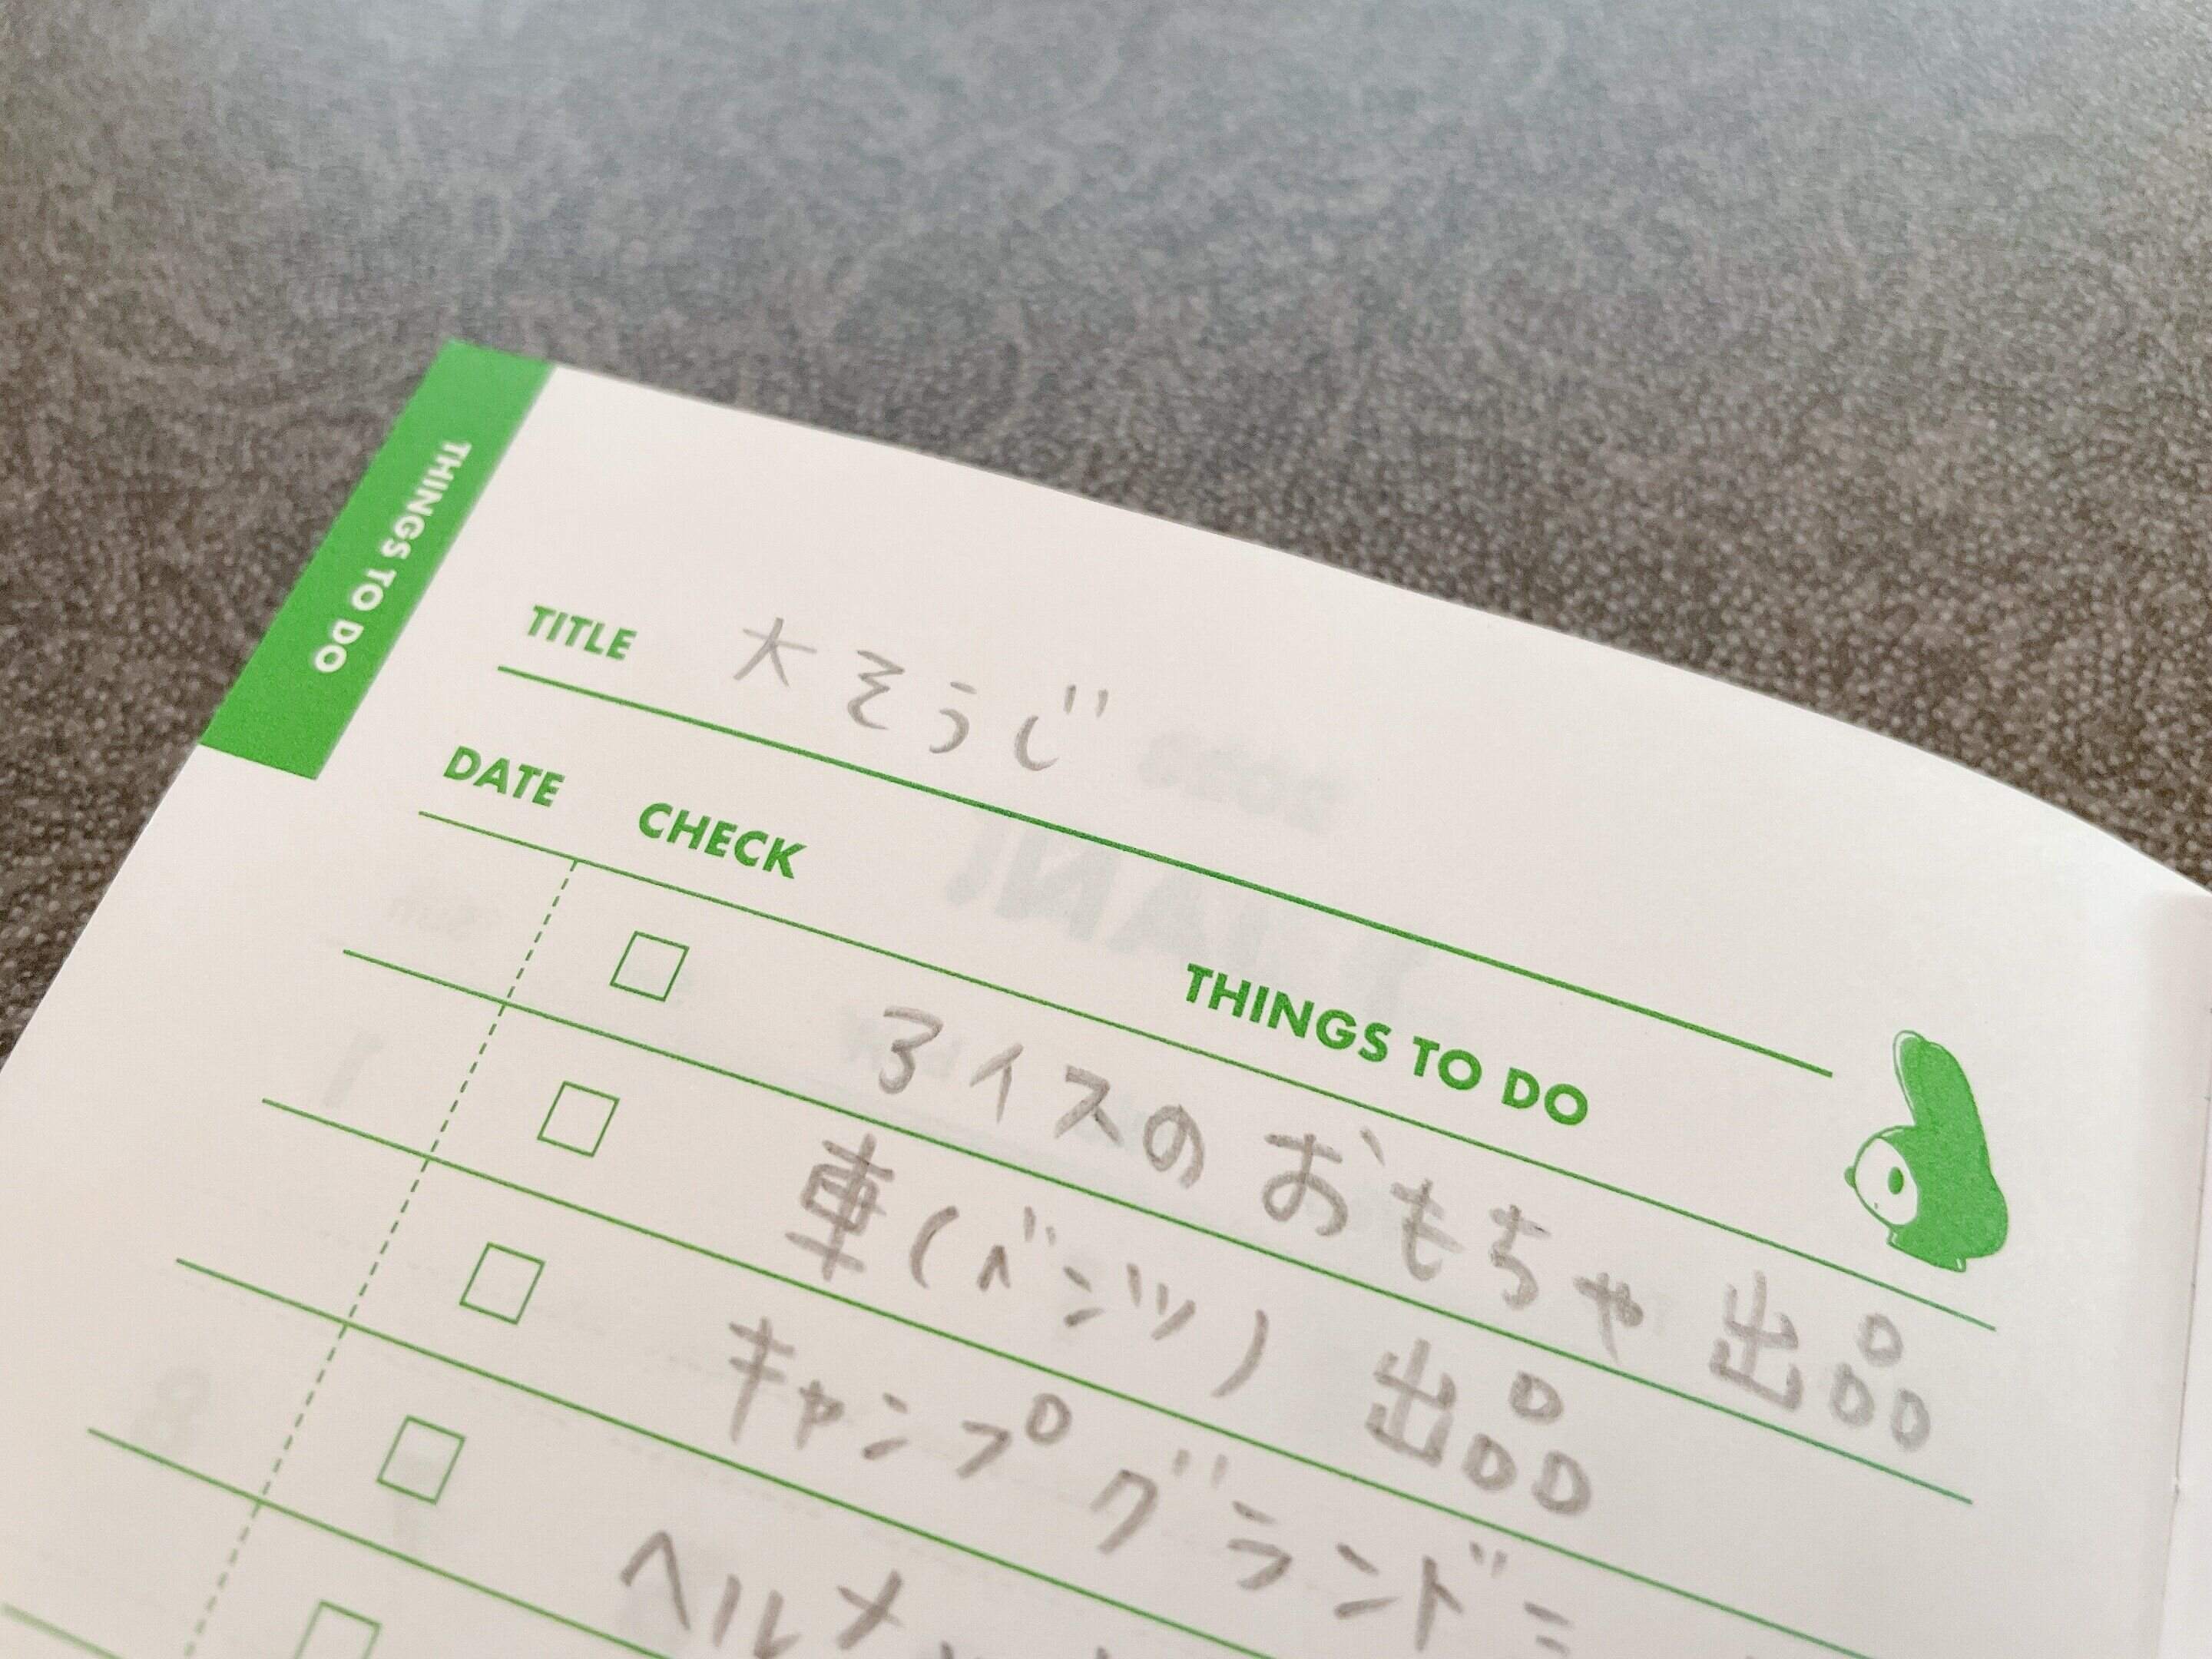 THINGS TO DO
TITLE 大そうじ
DATE CHECK THINGS TO DO
3イスのおもちゃ 出品
車(ベンツ) 出品
キャンプグランド=
ヘルメ